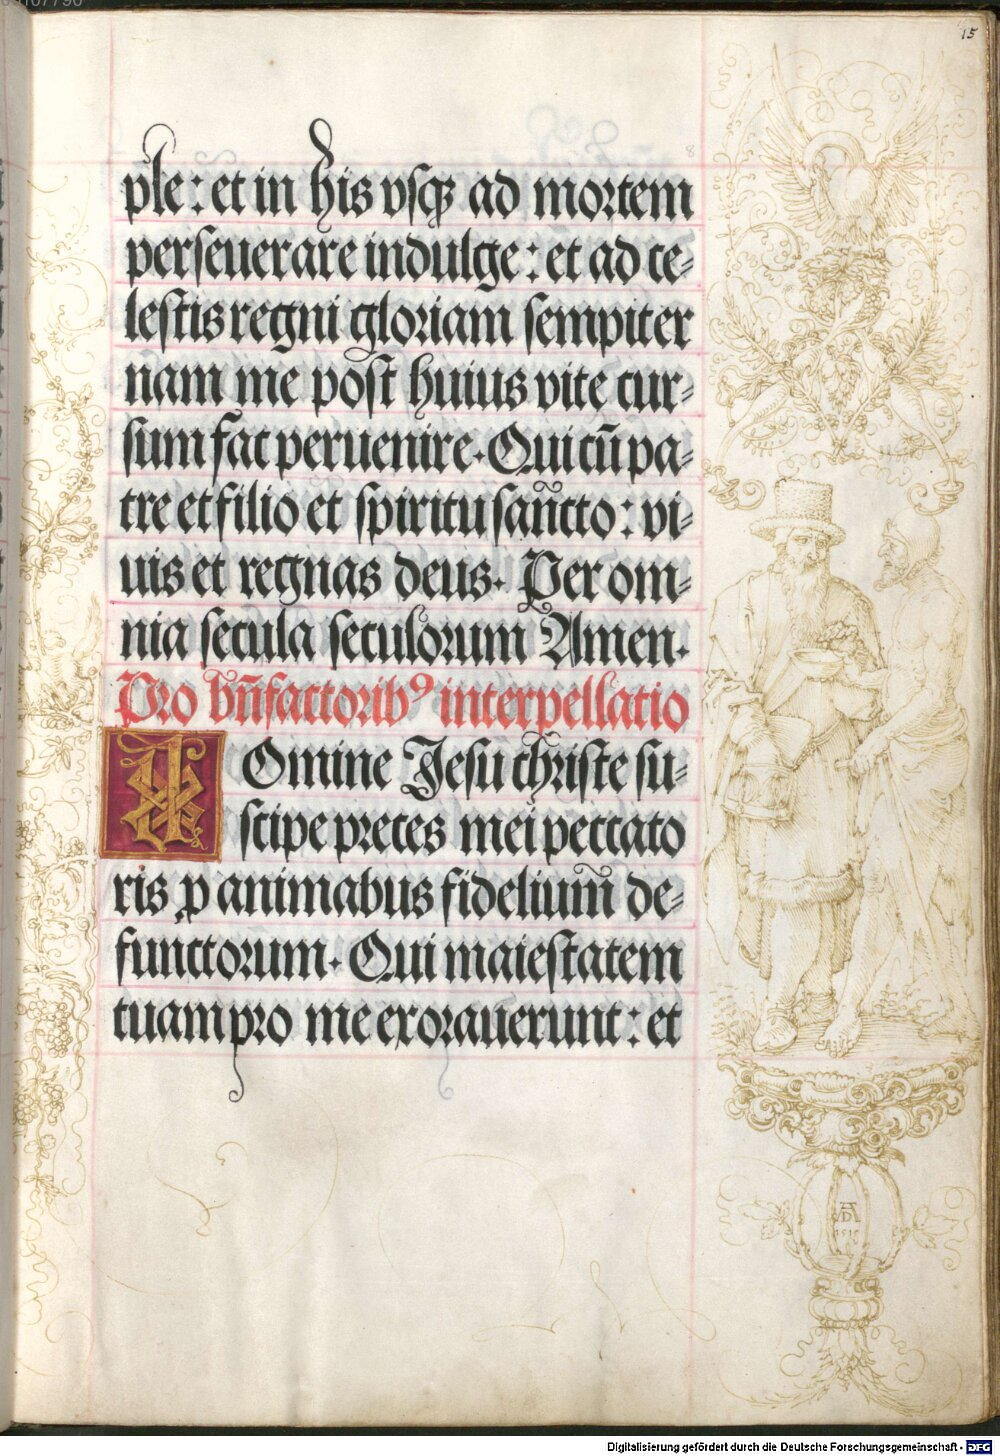 15
ple: et in his vsqꝫ ad mortem
perseuerare indulge: et ad ce-
lestis regni gloriam sempiter
nam me post huius vite cur-
sum fac peruenire. Qui cū pa-
tre et filio et spiritu sañcto: vi-
uis et regnas deus. Per om-
nia secula seculorum Amen.
Pro bn̄factoribꝰ interpellatio
DOmine Jesu christe su-
scipe preces mei peccato
ris ꝑ animabus fidelium̄ de-
functorum. Qui maiestatem
tuam pro me exorauerunt: et
AD
1515
Digitalisierung gefördert durch die Deutsche Forschungsgemeinschaft - DFG